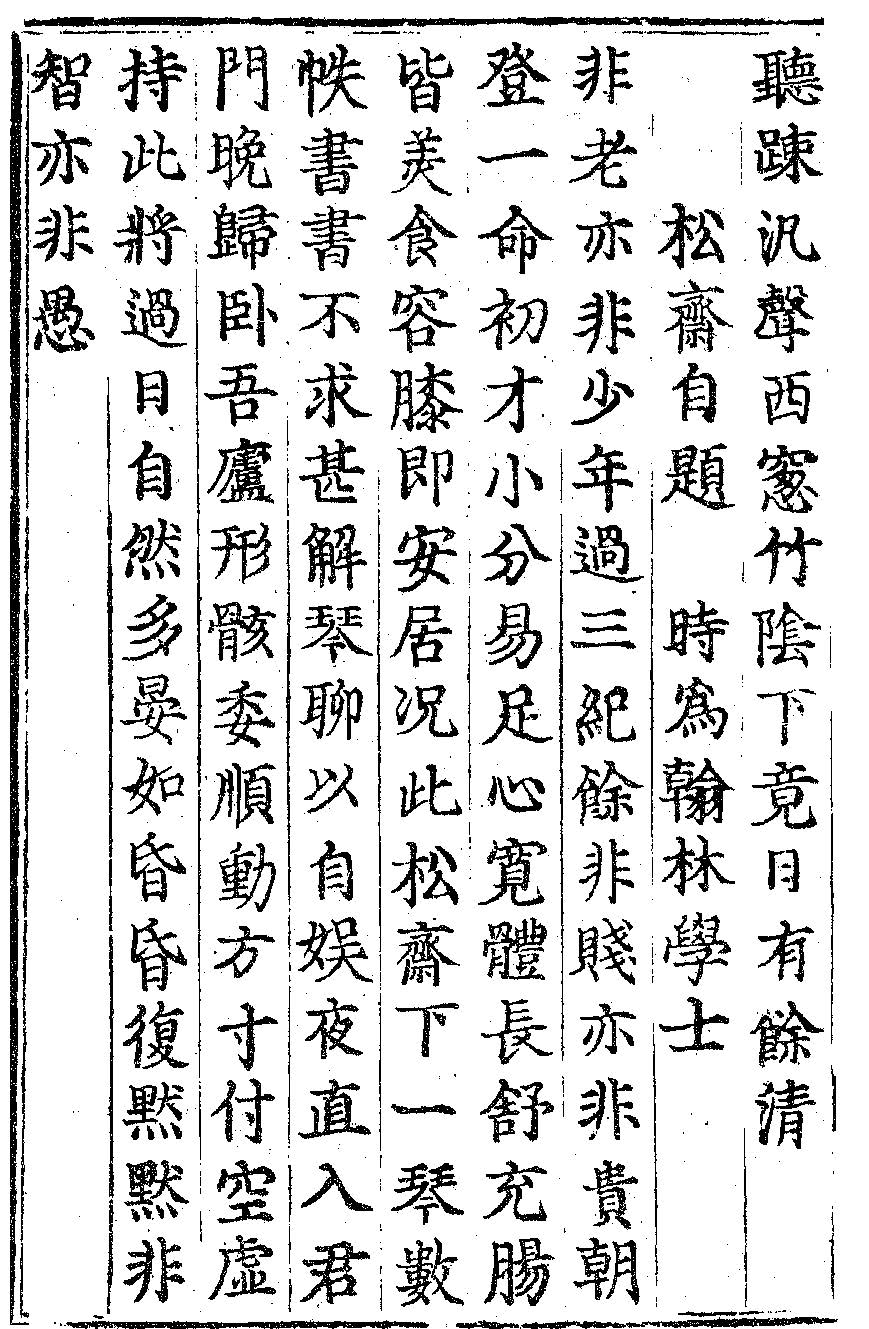 聽踈汎聲西窻竹陰下竟日有餘清
松齋自題　時爲翰林學士
非老亦非少年過三紀餘非賤亦非貴朝
登一命初才小分易足心寬體長舒充腸
皆羙食容膝即安居况此松齋下一琴數
帙書書不求甚解琴聊以自娱夜直入君
門晚歸卧吾廬形骸委順動方寸付空虛
持此將過日自然多晏如昏昏復默默非
智亦非愚